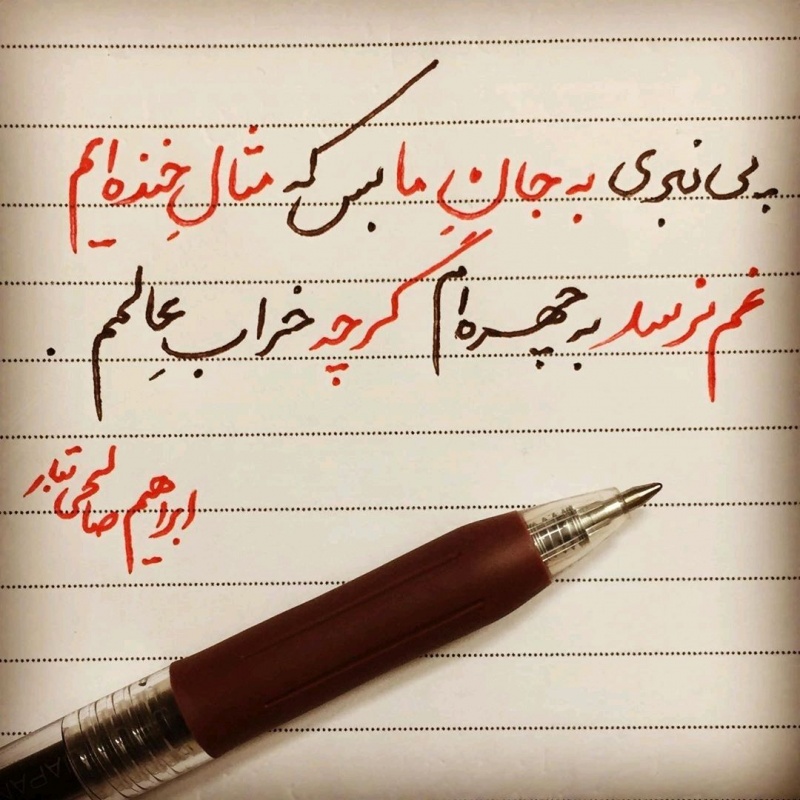 پی نبری به جانِ ما بس که مثالِ خنده ایم
غم نرسد به چهره ام گرچه خرابِ عالمم .
ابراهیم صالحی تبار
APAN